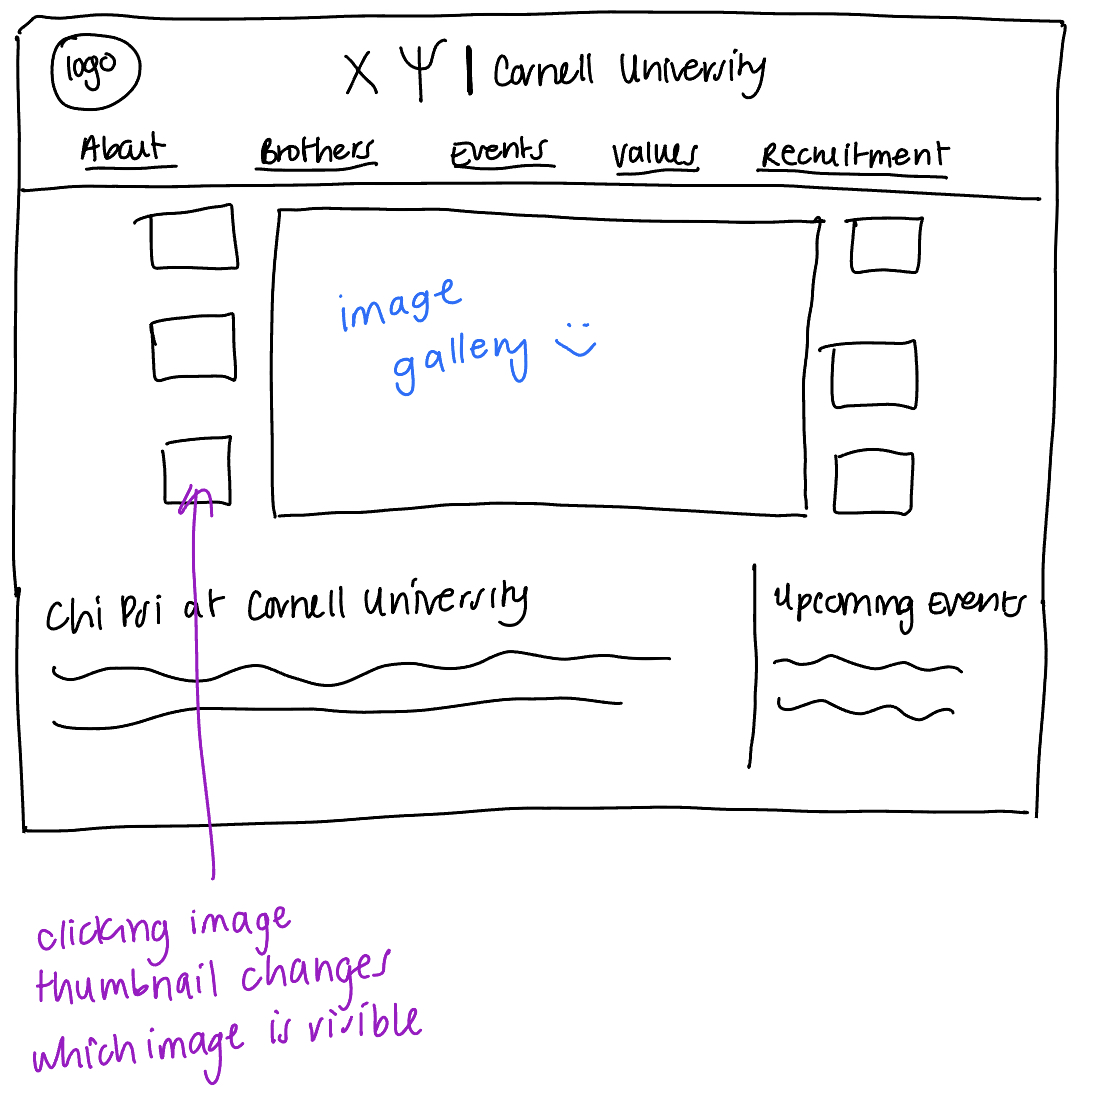 logo
Χ Ψ | Cornell University
About Brothers Events Values Recruitment
image
gallery :)
Chi Psi at Cornell University
Upcoming Events
clicking image
thumbnail changes
which image is visible